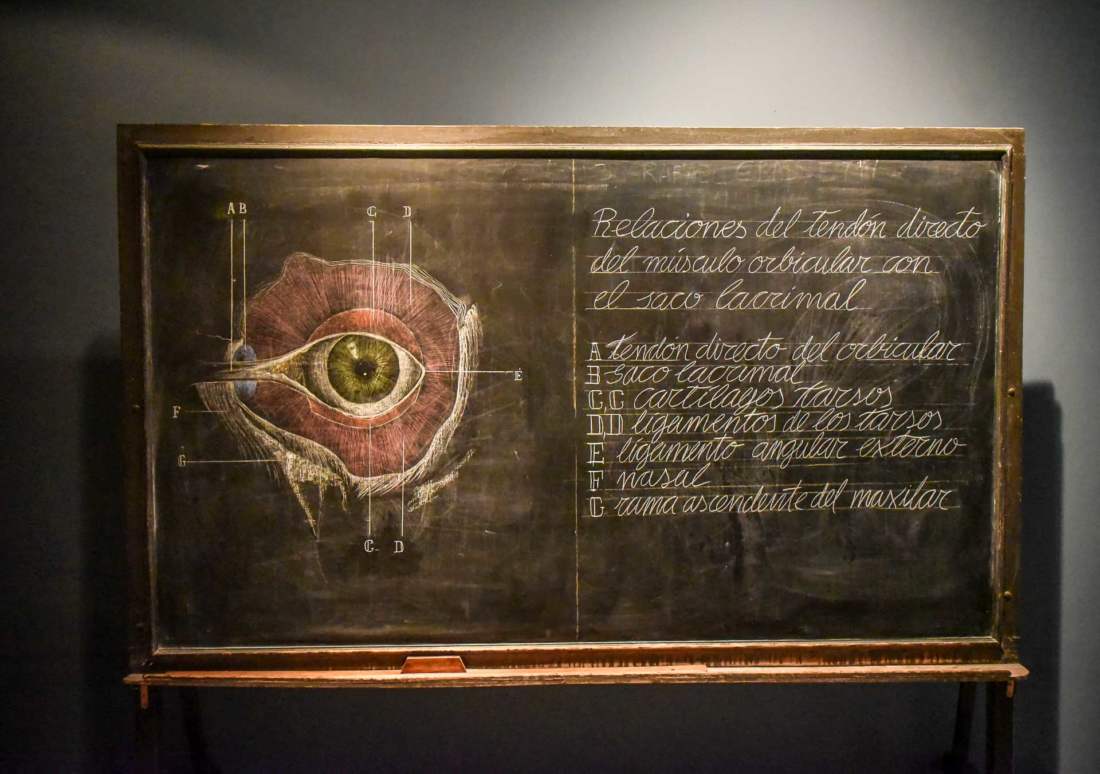 A B C D
E
F
G
C D
Relaciones del tendón directo
del músculo orbicular con
el saco lacrimal
A tendón directo del orbicular
B saco lacrimal
C, C cartílagos tarsos
D, D ligamentos de los tarsos
E ligamento angular externo
F nasal
G rama ascendente del maxilar